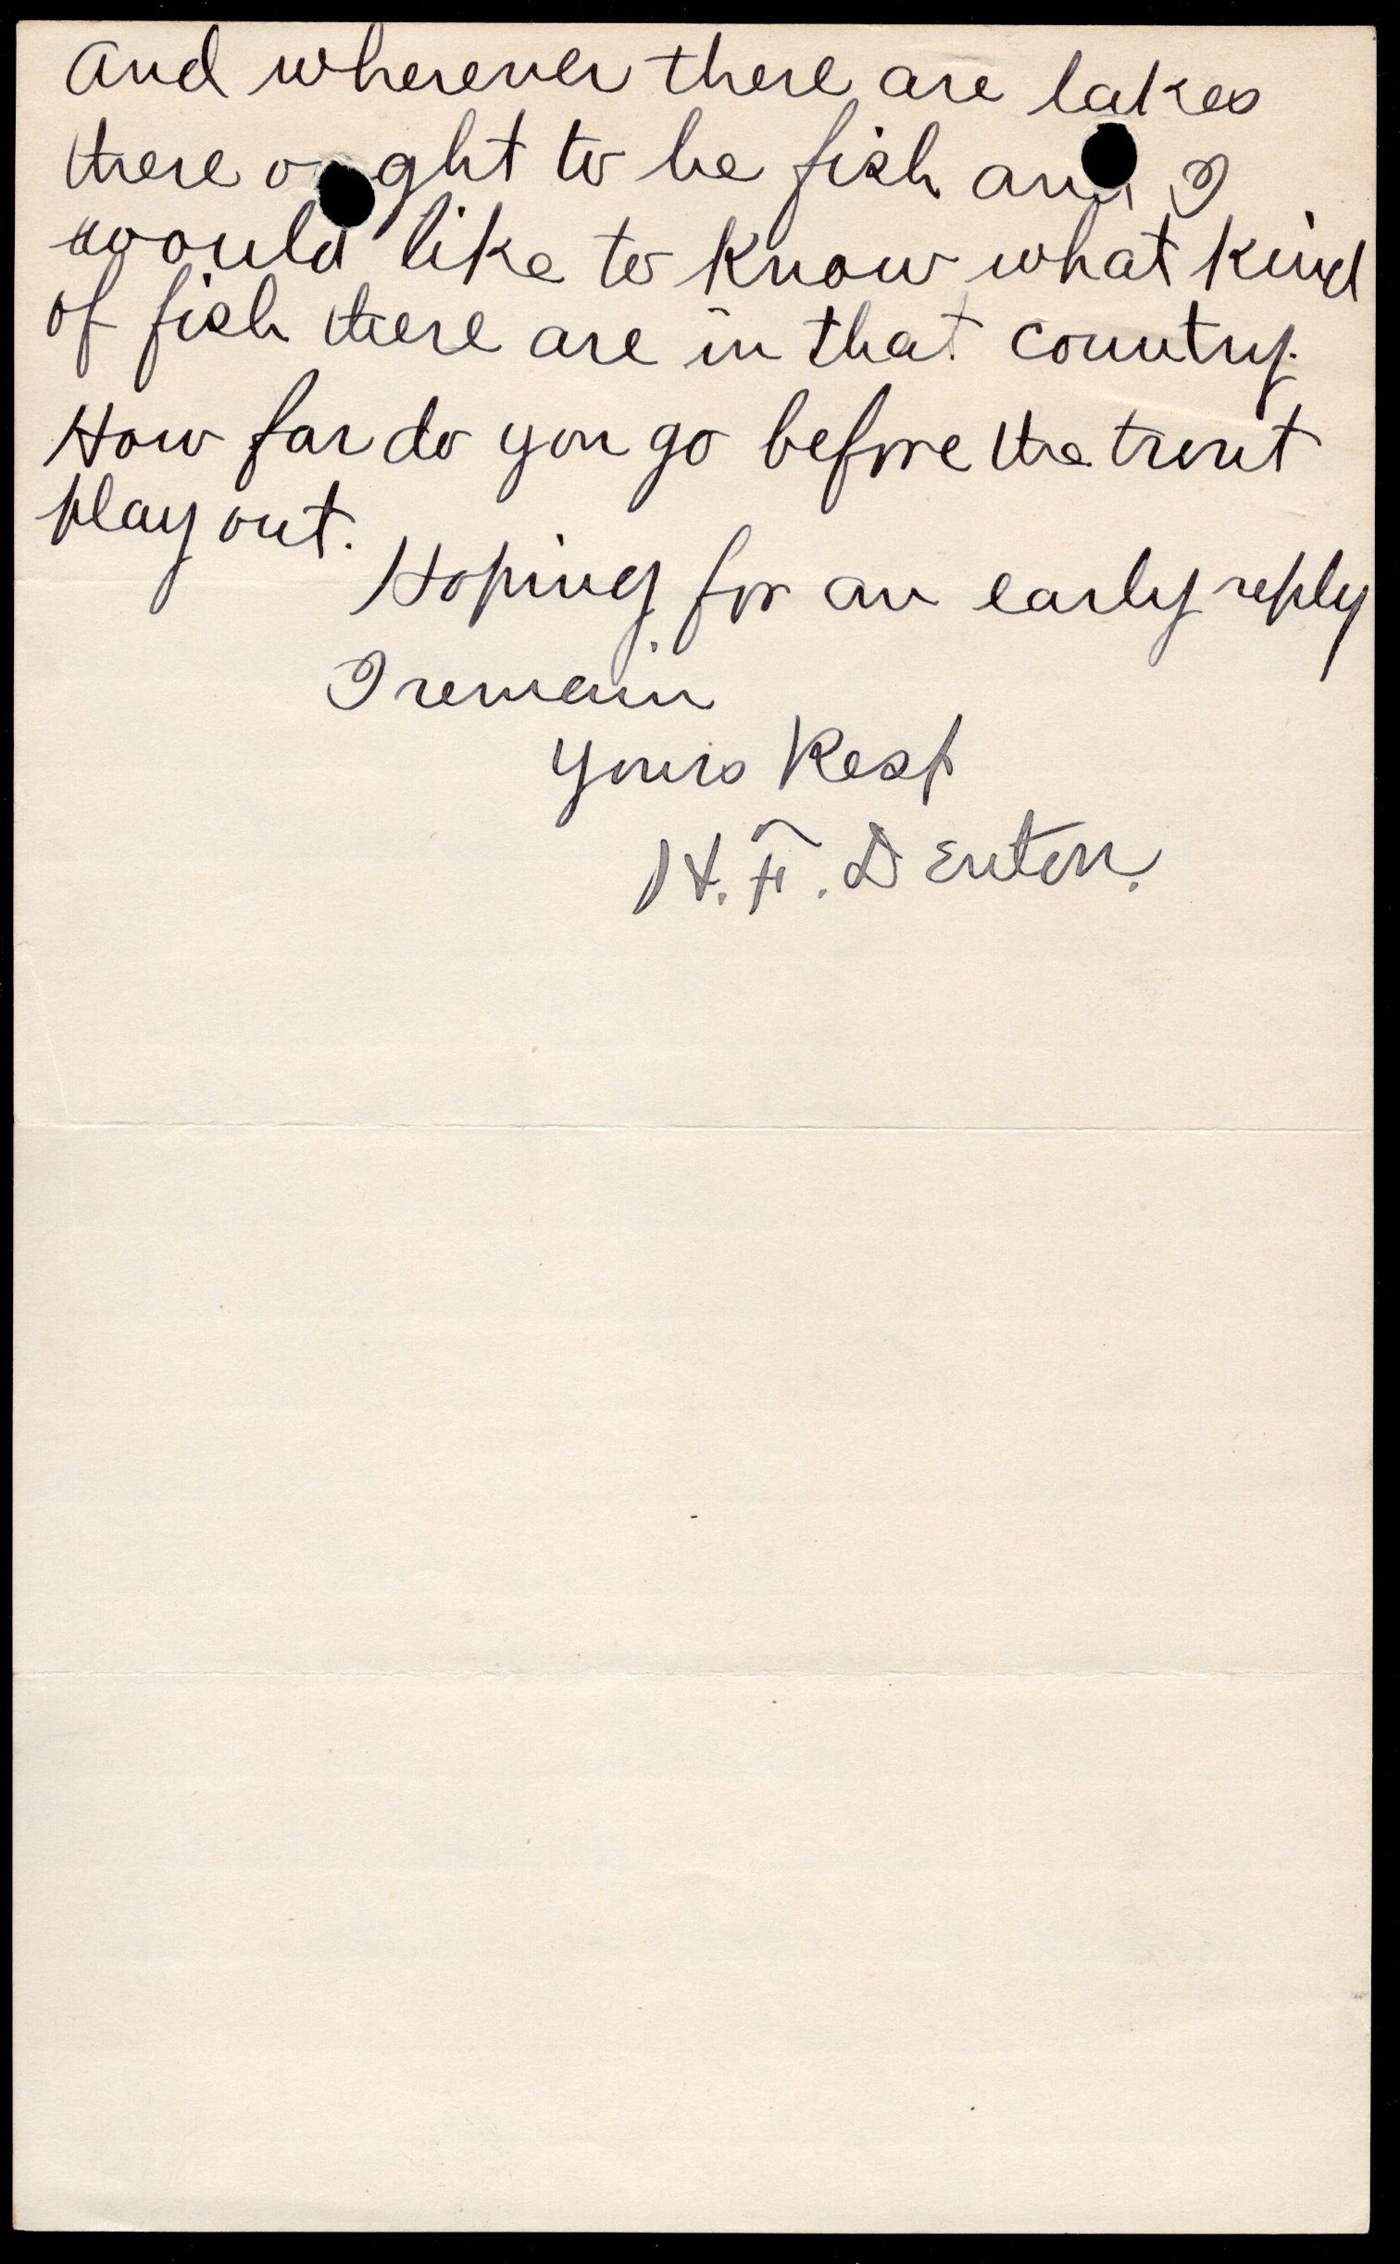 And wherever there are lakes
there ought to be fish and I
would like to know what kind
of fish there are in that country.
How far do you go before the trout
play out.
Hoping for an early reply
I remain
Yours Resp
H. F. Denton.